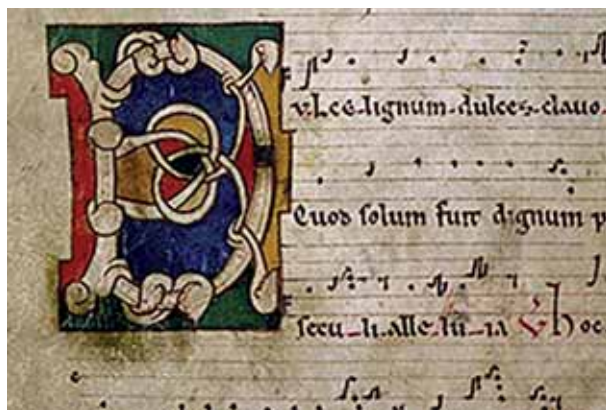 Dvlce lignum dulces clavo
Quod solum fuit dignum p
secu-li.alle-lu-ia V hoc